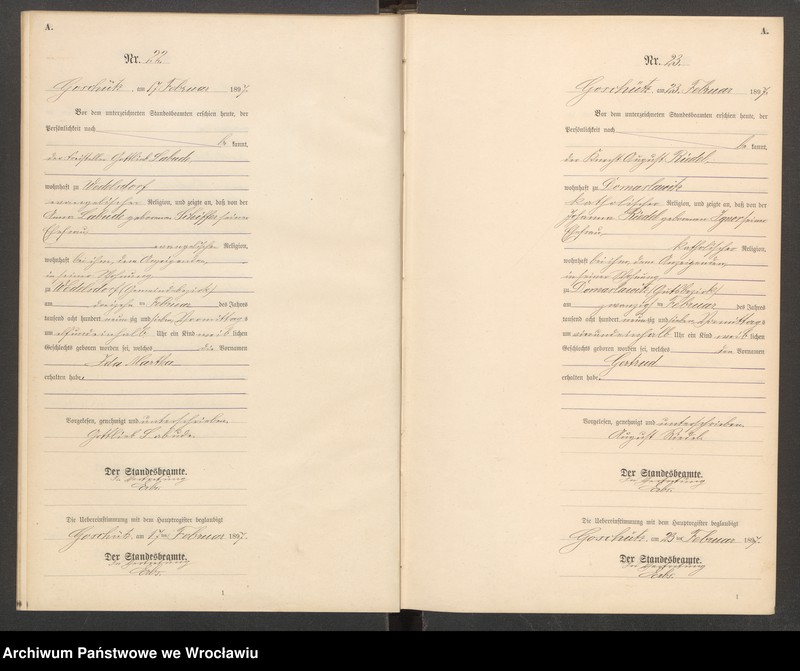 A.
Nr. 22.
Goschütz am 17. Februar 1897.
Vor dem unterzeichneten Standesbeamten erschien heute, der
Persönlichkeit nach
be kannt,
der Freistellenb. Gottlieb Labude,
wohnhaft zu Wedelsdorf
evangelischer Religion, und zeigte an, daß von der
Labude geborenen seiner
Ehefrau
evangelischer Religion,
wohnhaft bei ihm, dem Anzeigenden,
in seiner Wohnung
zu Wedelsdorf (Gemeindebezirk)
am ten Februar des Jahres
tausend acht hundert neun zig und sieben Vormittags
um elfundeinhalb Uhr ein Kind weib lichen
Geschlechts geboren worden sei, welches die Vornamen
Ida Martha
erhalten habe.
Vorgelesen, genehmigt und unterschrieben.
Gottlieb Labude.
Der Standesbeamte.
In Vertretung
Die Uebereinstimmung mit dem Hauptregister beglaubigt
Goschütz, am 17ten Februar 1897.
Der Standesbeamte.
In Vertretung
1
A.
Nr. 23.
Goschütz am 23. Februar 1897.
Vor dem unterzeichneten Standesbeamten erschien heute, der
Persönlichkeit nach
be kannt,
der Knecht August Riedel,
wohnhaft zu Domaslawitz
katholischer Religion, und zeigte an, daß von der
Johanna Riedel geborenen seiner
Ehefrau,
katholischer Religion,
wohnhaft bei ihm, dem Anzeigenden,
in seiner Wohnung
zu Domaslawitz (Gutsbezirk)
am ten Februar des Jahres
tausend acht hundert neun zig und sieben Vormittags
um undeinhalb Uhr ein Kind weib lichen
Geschlechts geboren worden sei, welches den Vornamen
Gertrud
erhalten habe.
Vorgelesen, genehmigt und unterschrieben.
August Riedel.
Der Standesbeamte.
In Vertretung
Die Uebereinstimmung mit dem Hauptregister beglaubigt
Goschütz am 23ten Februar 1897.
Der Standesbeamte.
In Vertretung
1
Archiwum Państwowe we Wrocławiu